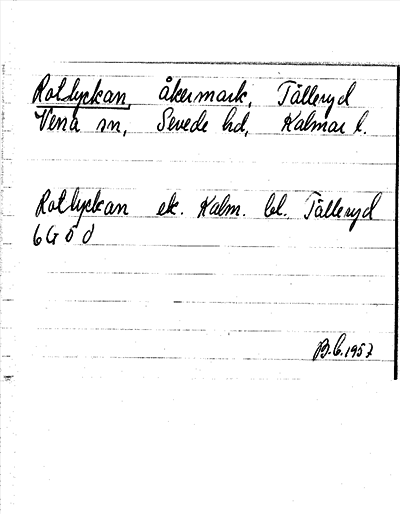 Rotlyckan, åkermark, Tålleryd
Vena sn, Sevede hd, Kalmar l.
Rotlyckan ek. Kalm. bl. Tålleryd
6 G ö d
B.C. 1957